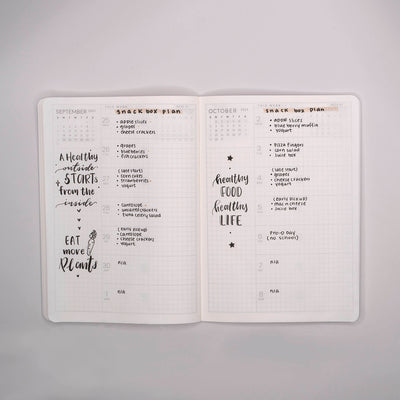 SEPTEMBER
snack box plan
25
• apple slices
• grapes
• cheese crackers
26
• grapes
• blueberries
• fish crackers
27
(late start)
• corn cakes
• strawberries
• yogurt
28
• cantaloupe
• tuna celery salad
29
(early pickup)
• cantaloupe
• cheese crackers
• yogurt
30
n/a
1
n/a
A Healthy
outside
STARTS
from the
inside
EAT
more
Plants
OCTOBER
snack box plan
2
• apple slices
• blueberry muffin
• yogurt
3
• pizza fingers
• corn salad
• juice box
4
(late start)
• grapes
• cheese crackers
• yogurt
5
(early pickup)
• mac n cheese
• juice box
6
Pro-D Day
(no school)
7
n/a
8
n/a
healthy
FOOD
healthy
LIFE